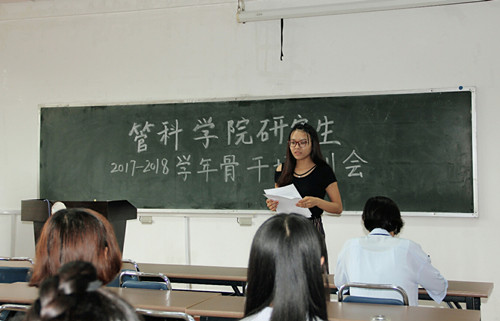 管科学院研究生
2017-2018学年骨干 训会